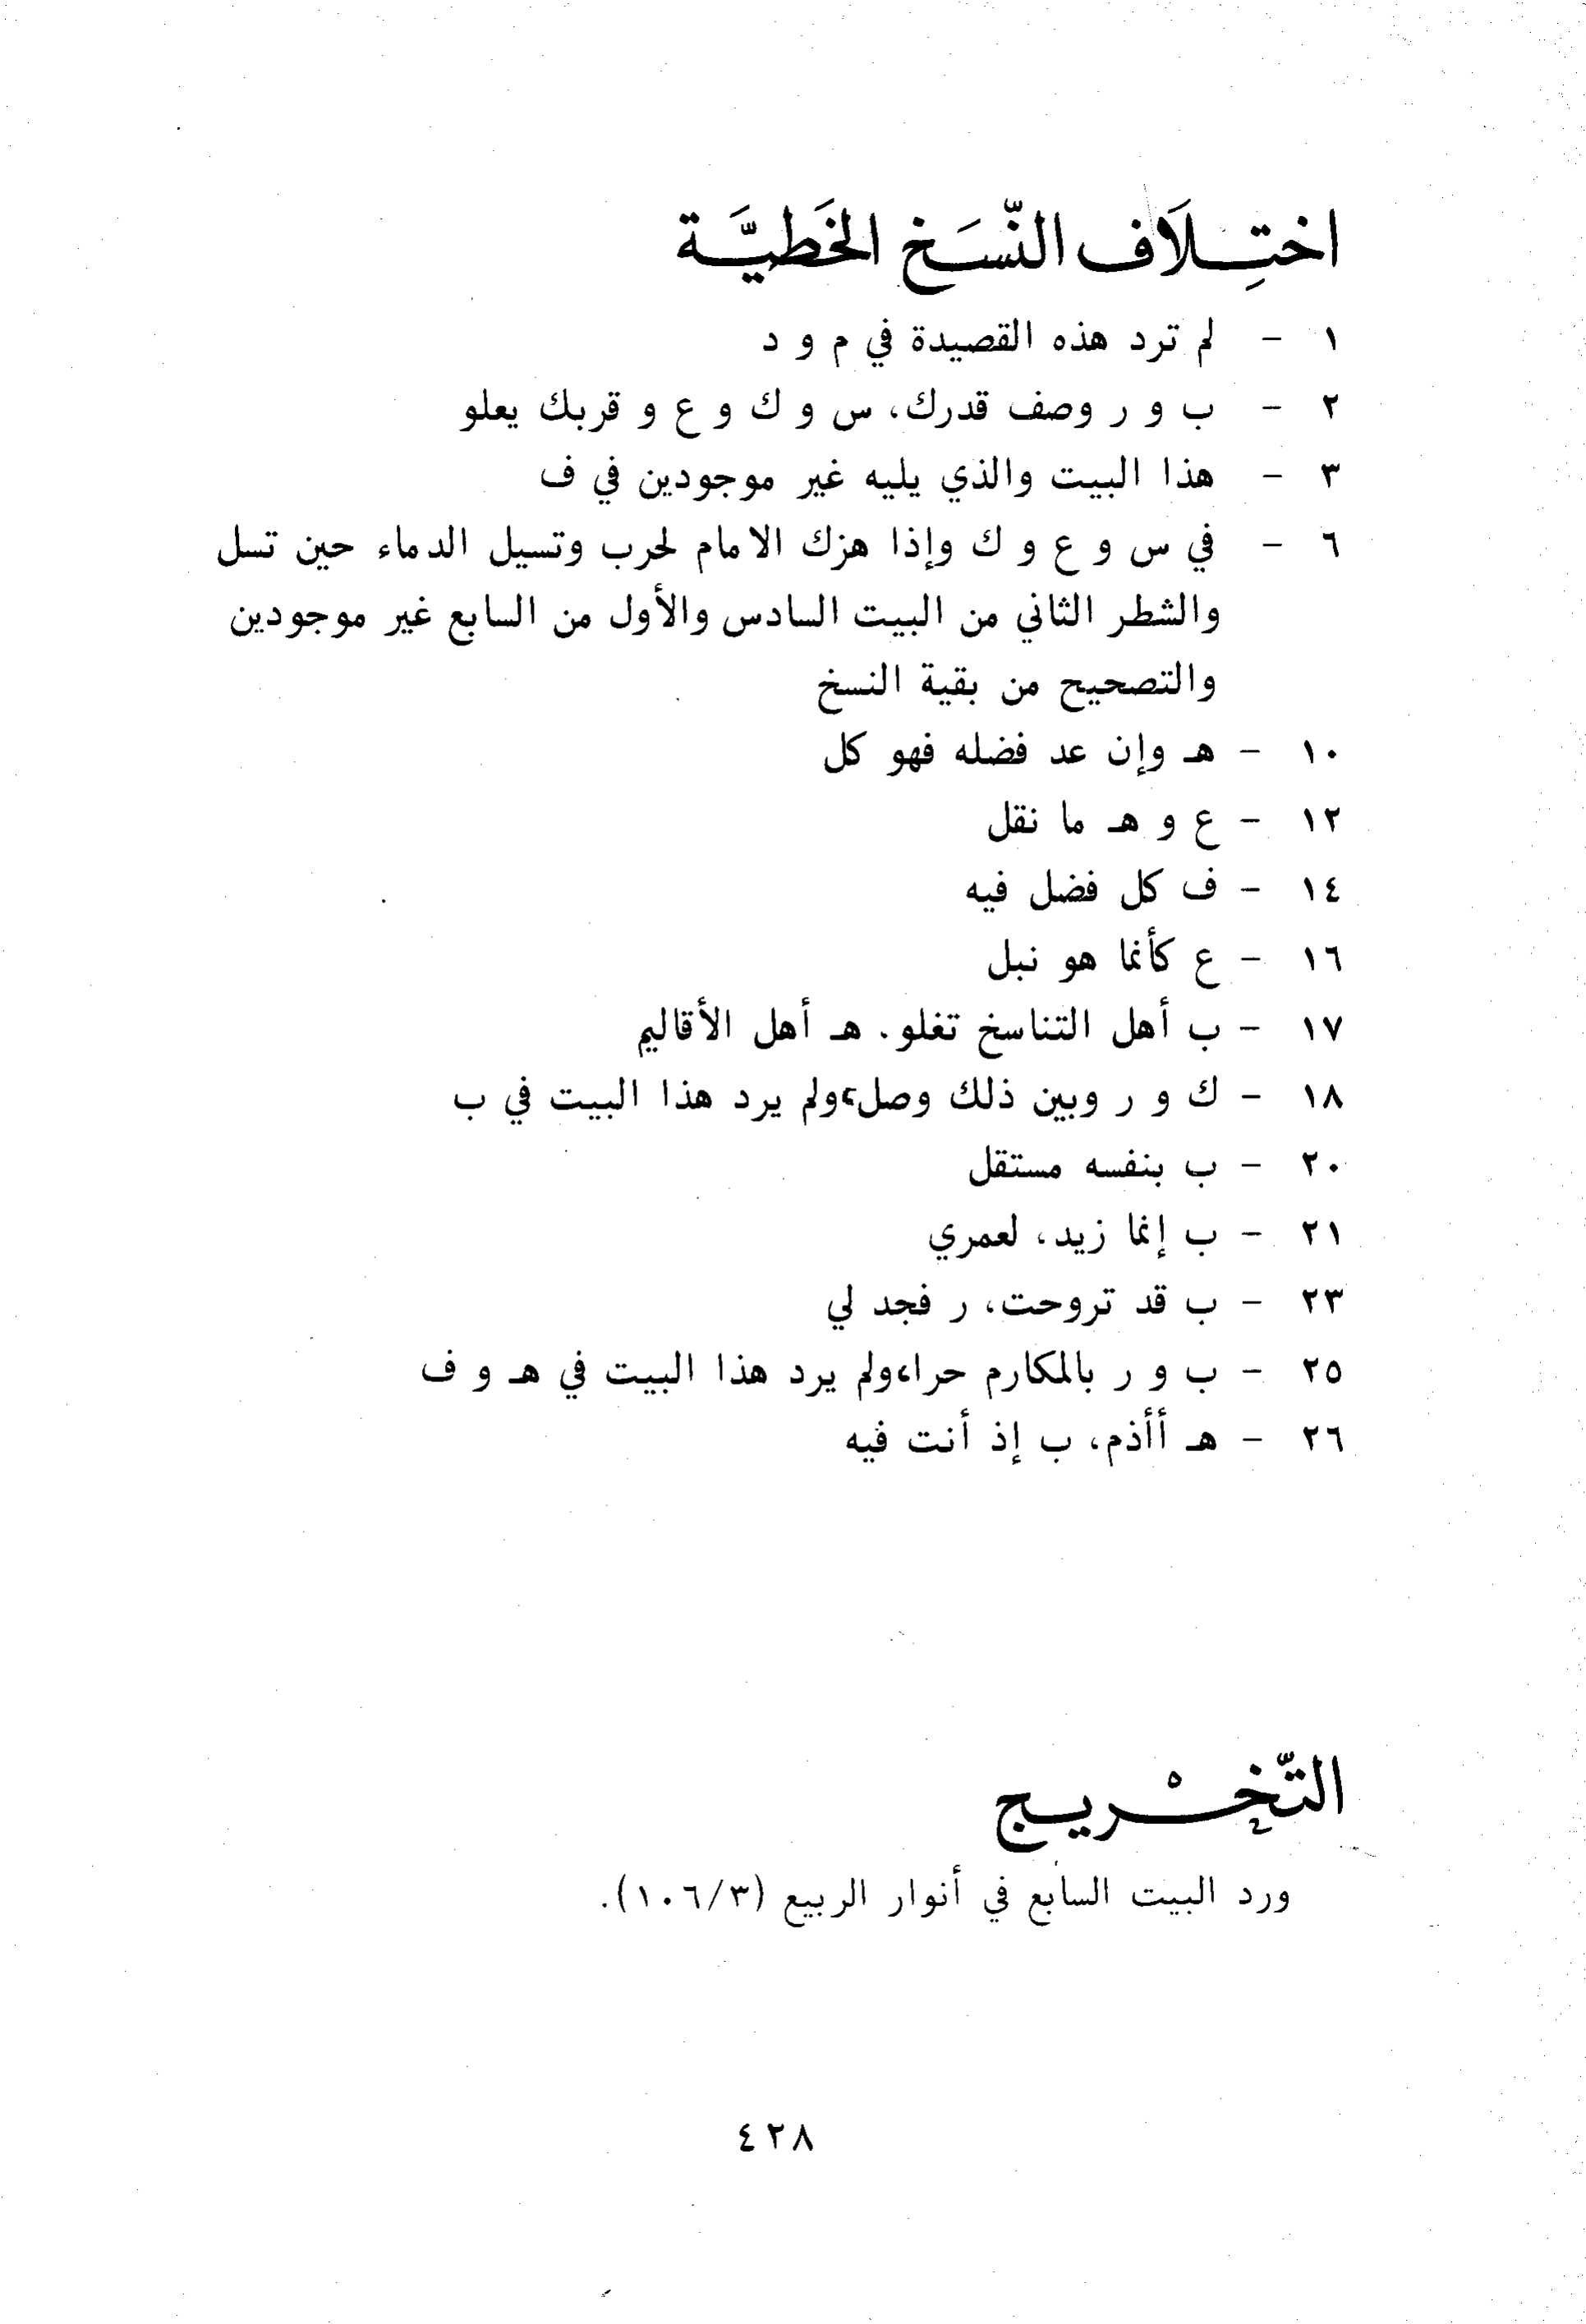 اختِلَاف النّسَخ الخَطيَّة
١ - لم ترد هذه القصيدة في م و د
٢ - ب و ر وصف قدرك، س و ك و ع و قربك يعلو
٣ - هذا البيت والذي يليه غير موجودين في ف
٦ - في س و ع و ك وإذا هزك الامام لحرب وتسيل الدماء حين تسل
والشطر الثاني من البيت السادس والأول من السابع غير موجودين
والتصحيح من بقية النسخ
١٠ - هـ وإن عد فضله فهو كل
١٢ - ع و هـ ما نقل
١٤ - ف كل فضل فيه
١٦ - ع كأنما هو نبل
١٧ - ب أهل التناسخ تغلو. هـ أهل الأقاليم
١٨ - ك و ر وبين ذلك وصل، ولم يرد هذا البيت في ب
٢٠ - ب بنفسه مستقل
٢١ - ب إنما زيد، لعمري
٢٣ - ب قد تروحت، ر فجد لي
٢٥ - ب و ر بالمكارم حرا، ولم يرد هذا البيت في هـ و ف
٢٦ - هـ أأذم، ب إذ أنت فيه
التّخْريج
ورد البيت السابع في أنوار الربيع (١٠٦/٣).
٤٢٨